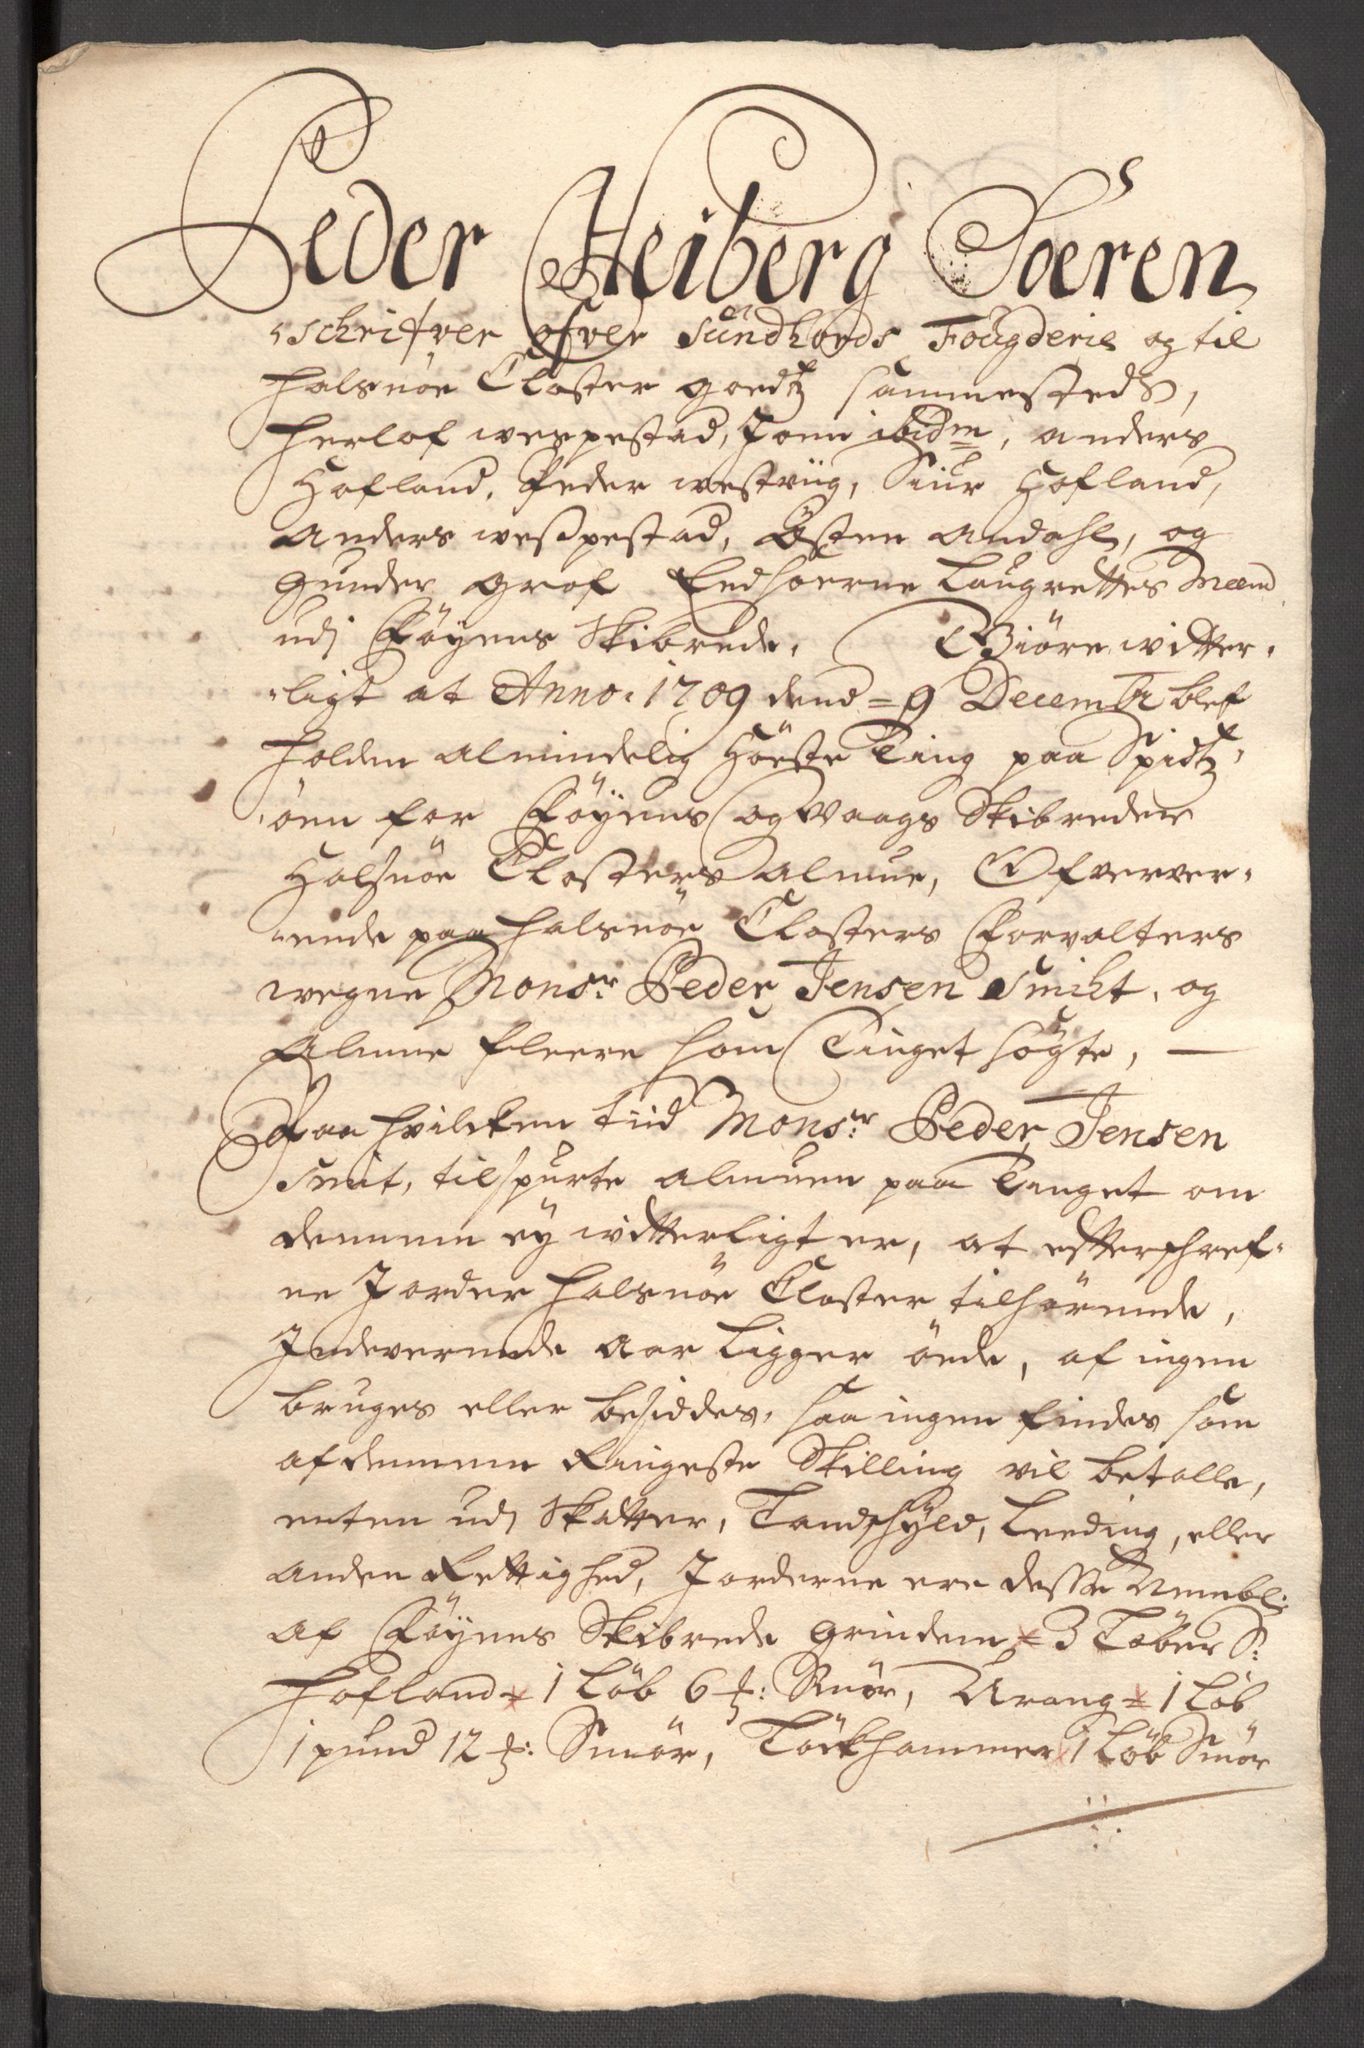 Peder Heiberg Soeren
-schrifver ofver Sundhords Fougderie og til
Halsnöe Closter goedtz sammesteds,
Herlof wespestad, Joen ibidm, anders
Hofland, Peder westviig, Siur Hofland,
Anders wespestad, Østen Andahl, og
Gunder Grof Eedsoerne Laugrettes Meend
udj Föyens Skibrede, Giöre witter-
-ligt at Anno 1709 dend = 9 Decembr blef
holden almindelig Höste Ting paa Spidtz-
-öen for Föyens og Waags Skibreder
Halsnöe Closters Almue, Ofverver-
-ende paa Halsnöe Closters Forvalters
wegne Monsr. Peder Jensen Smidt, og
Almue fleere som Tinget sögte, —
Paa hvilcken tiid Monsr: Peder Jensen
Smit, tilspurte almuen paa Tinget om
dennem ey witterligt er, at efterschref-
ne Jorder Halsnöe Closter tilhörende,
Indeverende Aar Ligger öede, af ingen
bruges eller besiddes, saa ingen findes som
af dennem Ringeste Skilling vil betalle,
enten udj Skatter, Landschyld, Leeding, eller
anden Rettighed, Jorderne ere desse Nembl:
Af Föyens Skibrede Grindem = 3 Löber S:
Hofland = 1 Löb 6 ℔: Smör, Urang = 1 Löb
1 pund 12 ℔: Smör, Löckhammer 1 Löb Smör